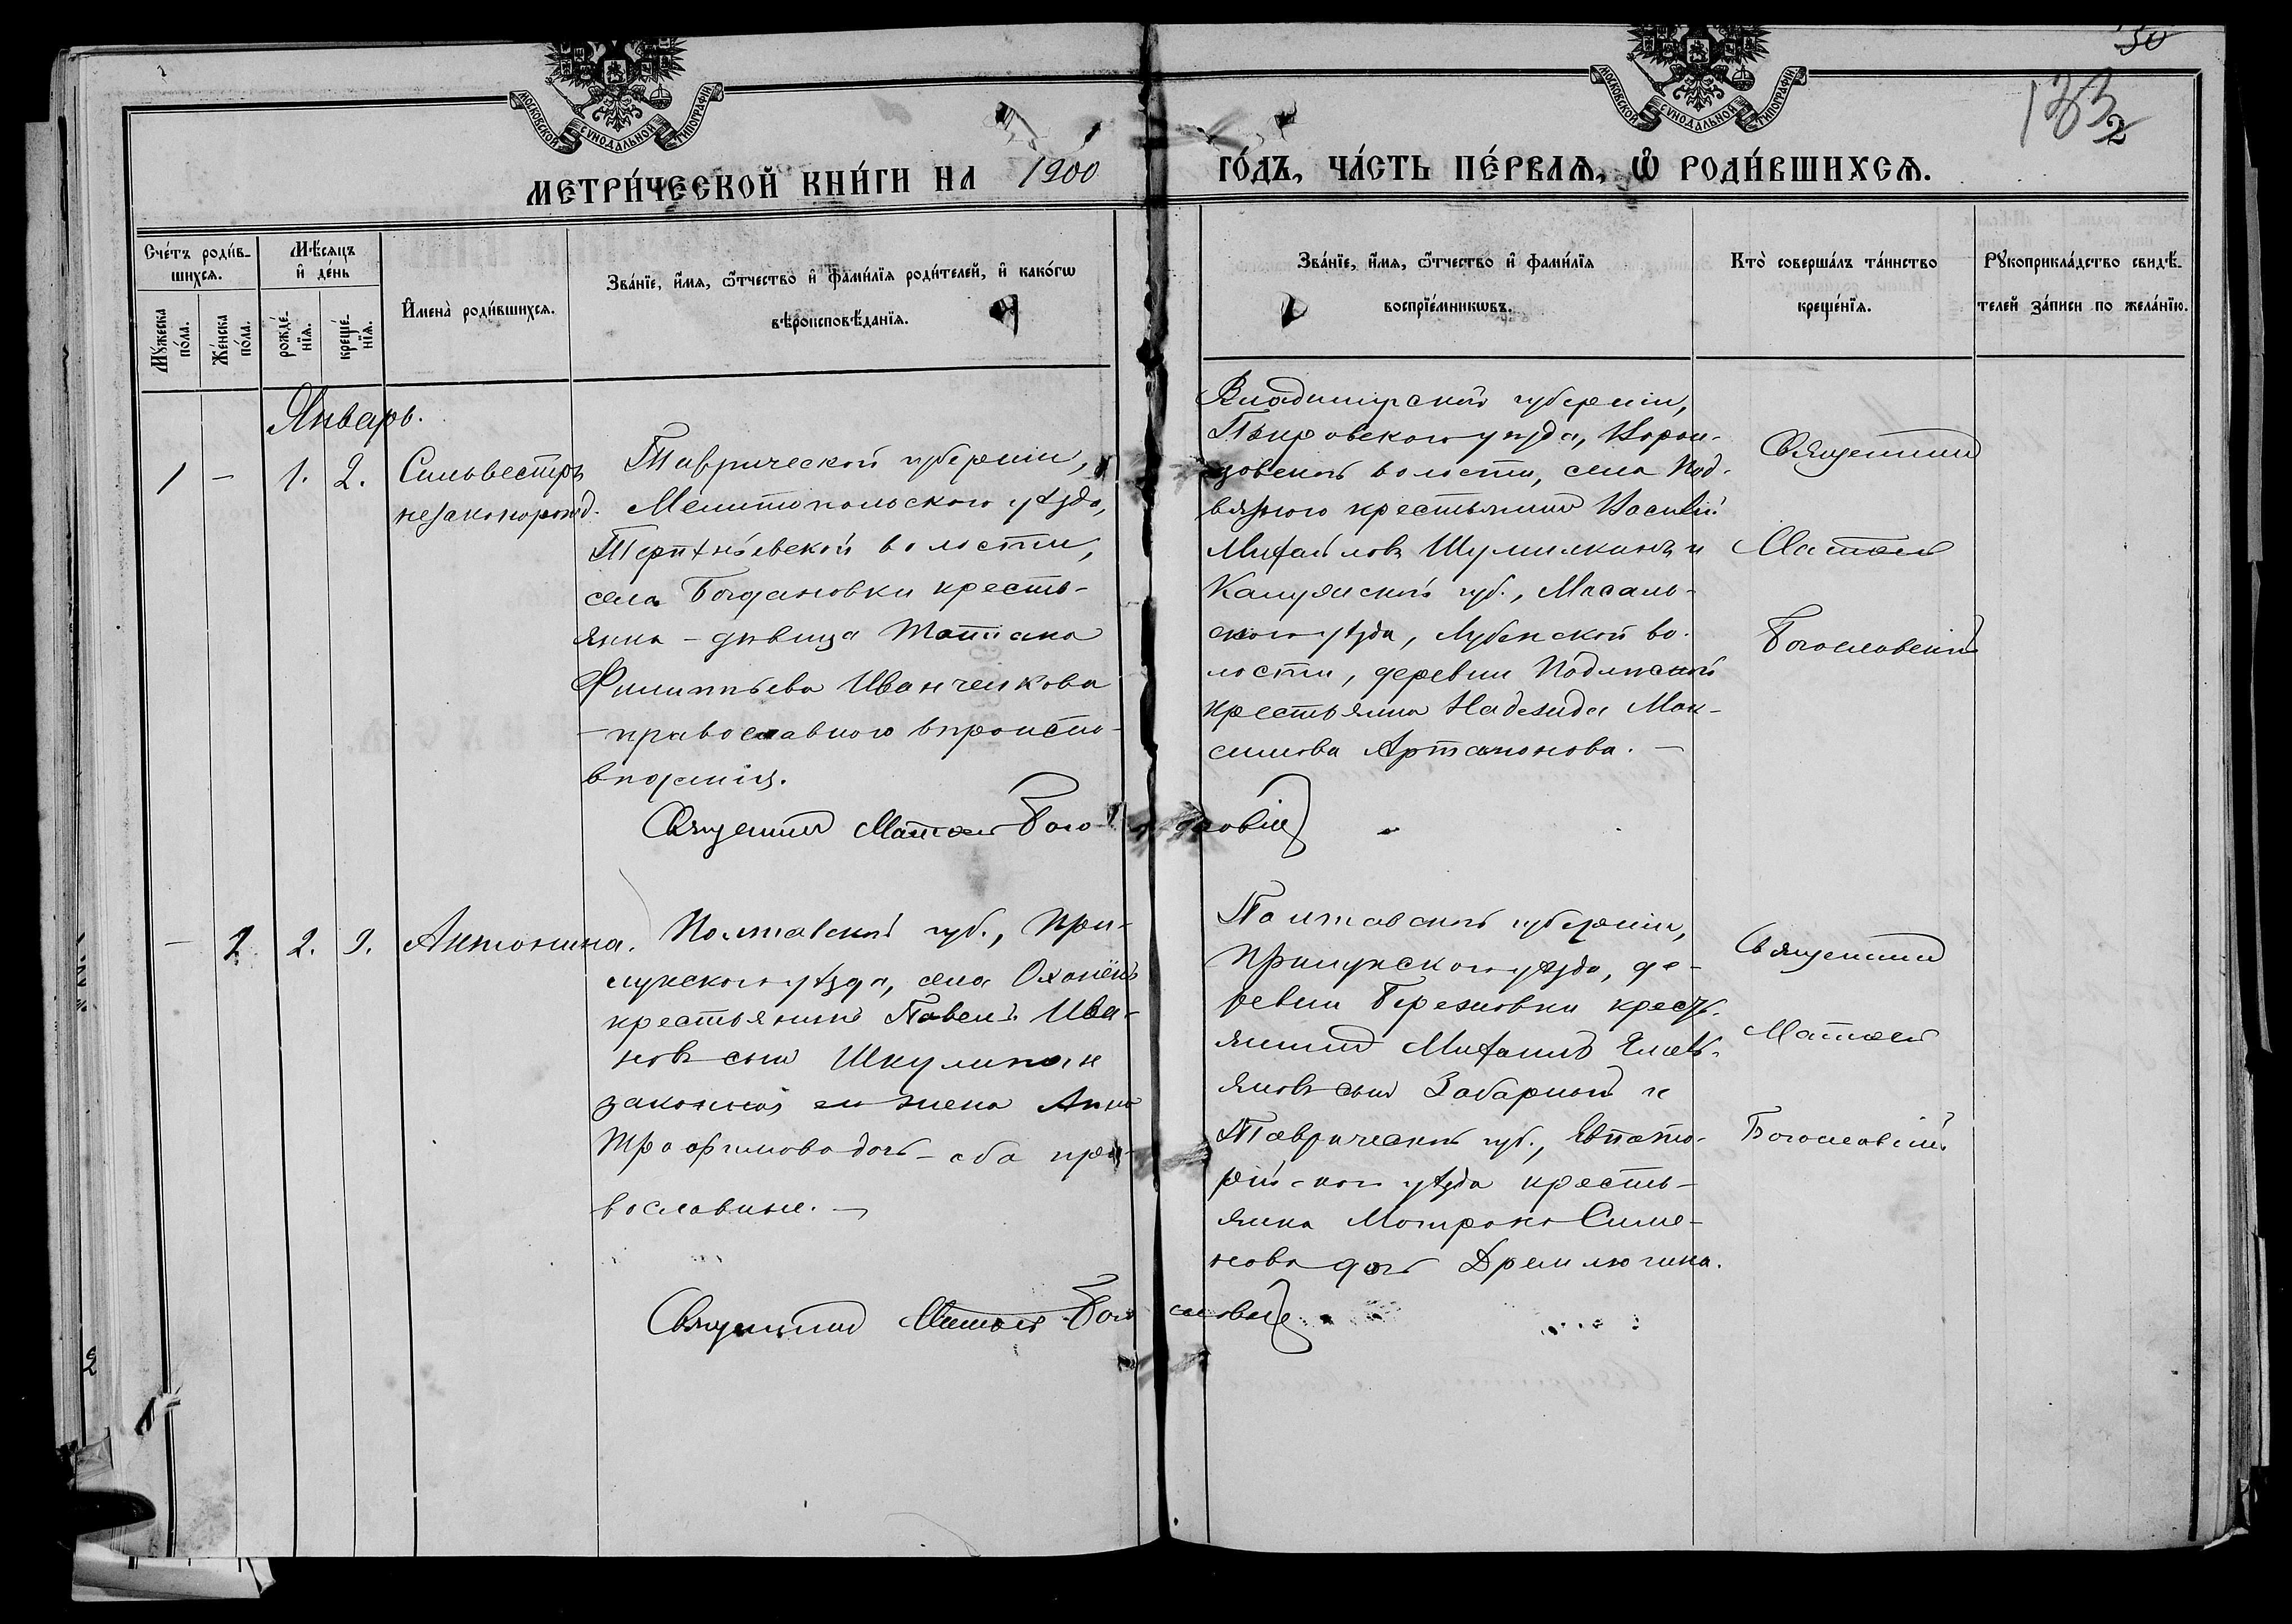 50
133
2
МОСКОВСКОЙ СѴНОДАЛЬНОЙ ТИПОГРАФІИ
МОСКОВСКОЙ СѴНОДАЛЬНОЙ ТИПОГРАФІИ
МЕТРИ́ЧЕСКОЙ КНИ́ГИ НА 1900 ГО́ДЪ, ЧА́СТЬ ПЕ́РВАѦ, Ѽ РОДИ́ВШИХСѦ.
Сче́тъ роди́в-
шихсѧ.
Мꙋ́жеска
по́ла.
Же́нска
по́ла.
Мѣ́сяцъ
и҆ де́нь
рожде́-
нїѧ.
креще́-
нїѧ.
И҆мена̀ роди́вшихсѧ.
Зва́нїе, и҆́мѧ, ѻ҆́тчество и҆ фами́лїѧ роди́телей, и҆ како́гѡ
вѣроисповѣ́данїѧ.
Зва́нїе, и҆́мѧ, ѻ҆́тчество и҆ фами́лїѧ
воспрїе́мникѡвъ.
Кто̀ соверша́лъ та́инство
креще́нїѧ.
Рꙋкоприкла́дство свидѣ́-
телей за́писи по жела́нїю.
Январь.
1 - 1. 2. Сильвестръ
незаконорожд.
Таврической губерніи,
Мелитопольскаго уѣзда,
Терпѣніевской волости,
села Богдановки кресть-
янка - дѣвица Татіана
Филиппьева Иванченкова
- православнаго вѣроиспо-
вѣданія.
Владимірской губерніи,
Покровскаго уѣзда, Ворон-
цовской волости, села Под-
вязного крестьянинъ Василій
Михайловъ Шумилкинъ и
Калужской губ., Масаль-
скаго уѣзда, Лубенской во-
лости, деревни
крестьянка Надежда Мак-
симова Артамонова. -
Священникъ
Матѳей
Богословскій
Священникъ Матѳей Богословскій
- 2 2. 9. Антонина.
Полтавской губ., При-
лукскаго уѣзда, села
крестьянинъ Павелъ Ива-
новъ сынъ Шкулипа и
законная его жена Анна
Трофимова дочь - оба пра-
вославные. -
Полтавской губерніи,
Прилукскаго уѣзда, де-
ревни Березовки кресть-
янинъ Михаилъ Емель-
яновъ сынъ Забарный и
Таврической губ., Евпато-
рійскаго уѣзда кресть-
янка Матрона Симе-
нова дочь Дремлюгина.
Священникъ
Матѳей
Богословскій
Священникъ Матѳей Богословскій
2